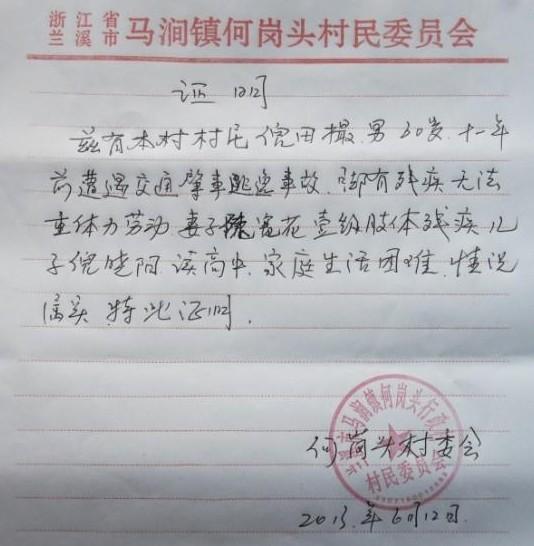 浙江省
兰溪市
马涧镇何岗头村民委员会
证明
兹有本村村民倪田撮.男50岁.十一年
前遭遇交通肇事逃逸事故.脚有残疾无法
重体力劳动 妻子陈富花壹级肢体残疾儿
子倪晓阳读高中.家庭生活困难.情况
属实 特此证明.
马涧镇何岗头行政
村民委员会
何岗头村委会
2013.年6月12日.